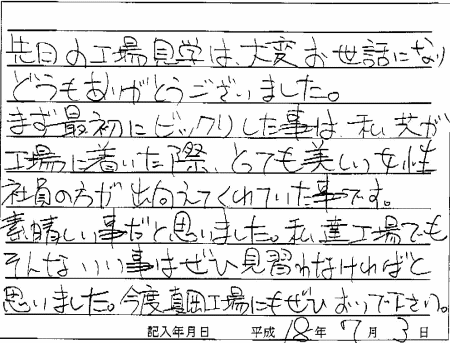 先日の工場見学は、大変お世話になり
どうもありがとうございました。
まず最初にビックリした事は、私共が
工場に着いた際、とっても美しい女性
社員の方が出向えてくれていた事です。
素晴しい事だと思いました。私達工場でも
そんないい事はぜひ見習わなければと
思いました。今度真岡工場にもぜひおいで下さい。
記入年月日 平成 18 年 7 月 3 日